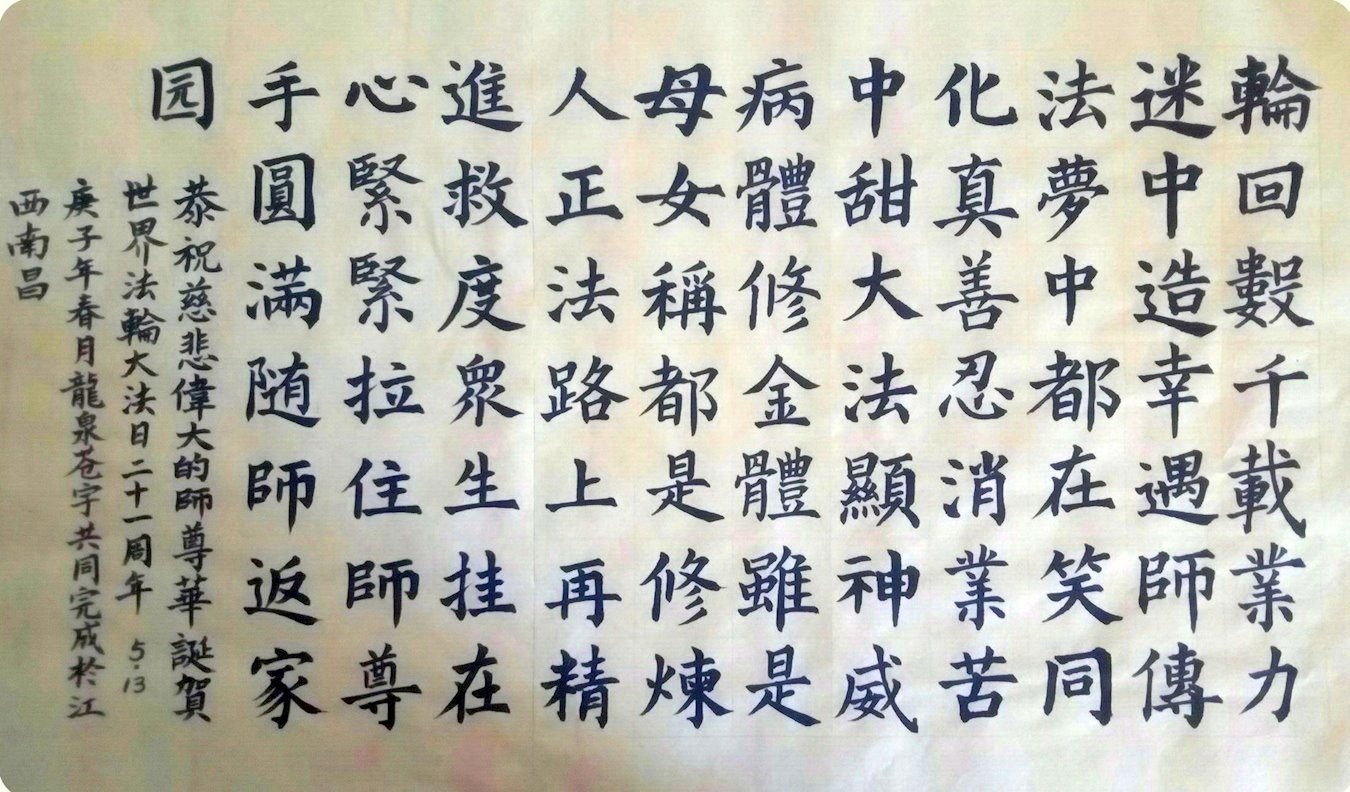 輪回數千載業力
迷中造幸遇師傳
法夢中都在笑同
化真善忍消業苦
中甜大法顯神威
病體修金體雖是
母女稱都是修煉
人正法路上再精
進救度眾生挂在
心緊緊拉住師尊
手圓滿随師返家
园
恭祝慈悲偉大的師尊華誕賀
世界法輪大法日二十一周年 5.13
庚子年春月龍泉苍宇共同完成於江
西南昌